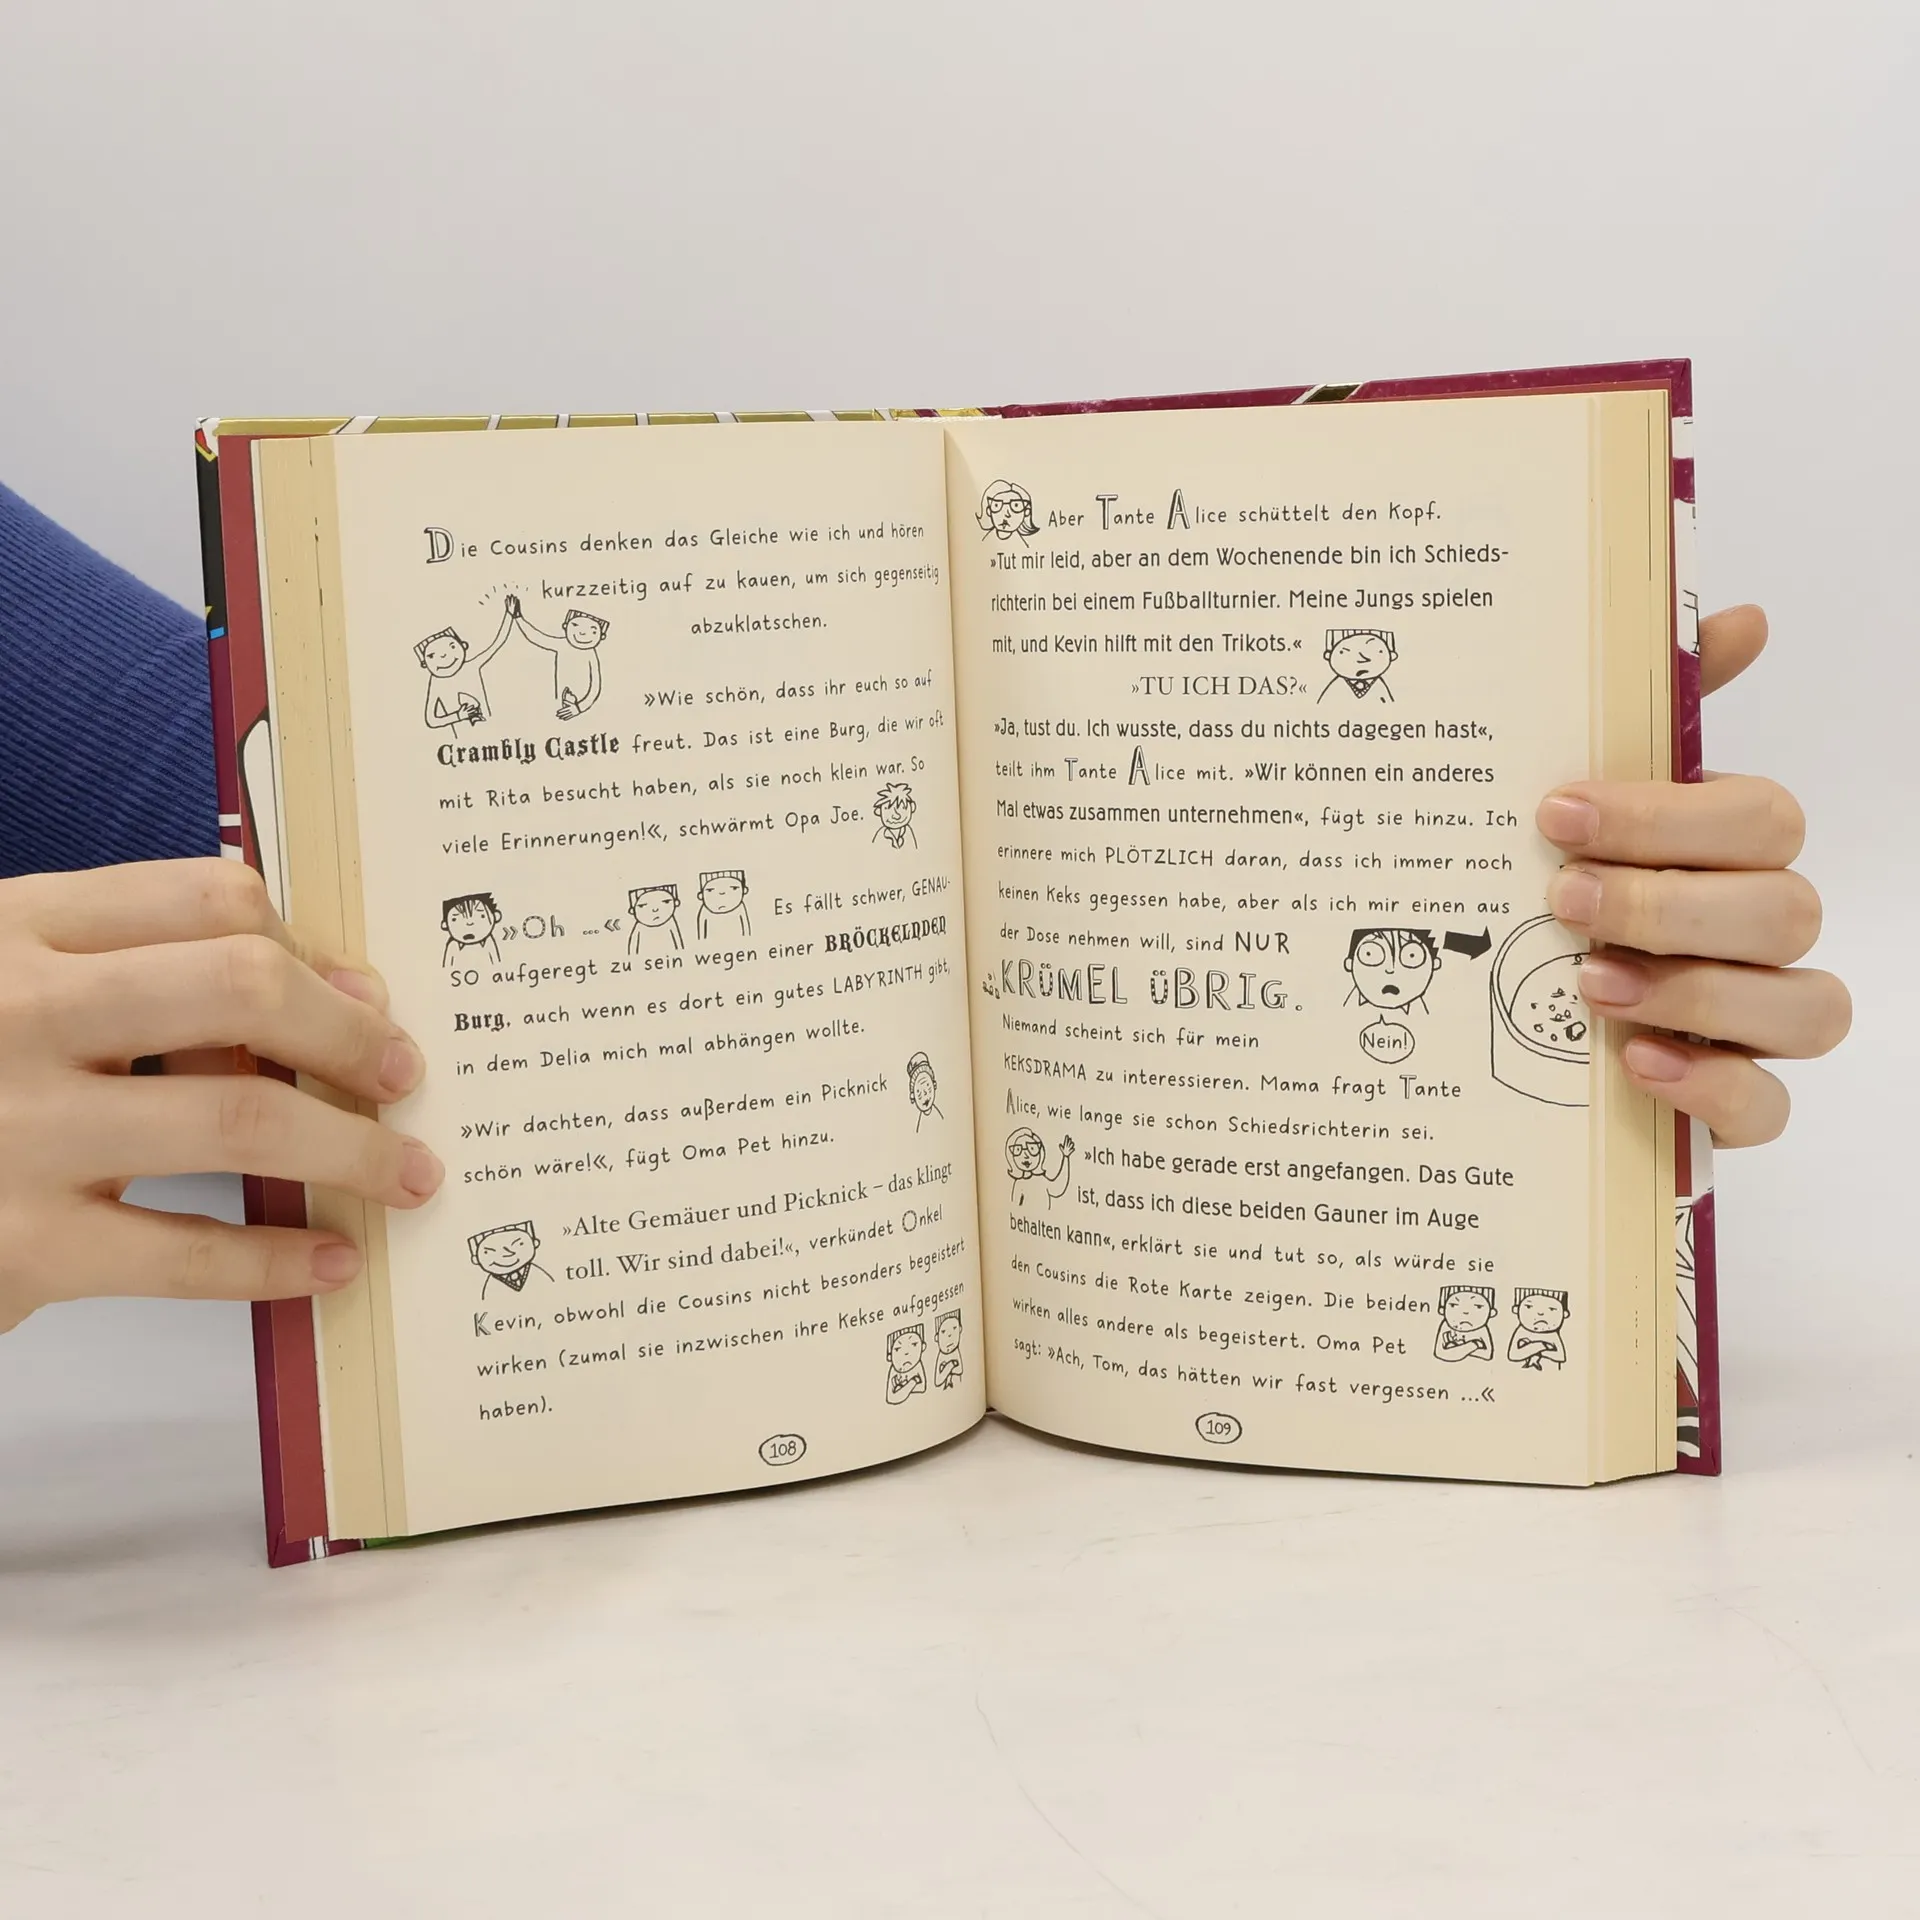 Die Cousins denken das Gleiche wie ich und hören
kurzzeitig auf zu kauen, um sich gegenseitig
abzuklatschen.
»Wie schön, dass ihr euch so auf
Crambly Castle freut. Das ist eine Burg, die wir oft
mit Rita besucht haben, als sie noch klein war. So
viele Erinnerungen!«, schwärmt Opa Joe.
»Oh ...« Es fällt schwer, GENAU-
SO aufgeregt zu sein wegen einer BRÖCKELNDEN
Burg, auch wenn es dort ein gutes LABYRINTH gibt,
in dem Delia mich mal abhängen wollte.
»Wir dachten, dass außerdem ein Picknick
schön wäre!«, fügt Oma Pet hinzu.
»Alte Gemäuer und Picknick – das klingt
toll. Wir sind dabei!«, verkündet Onkel
Kevin, obwohl die Cousins nicht besonders begeistert
wirken (zumal sie inzwischen ihre Kekse aufgegessen
haben).
108
Aber Tante Alice schüttelt den Kopf.
»Tut mir leid, aber an dem Wochenende bin ich Schieds-
richterin bei einem Fußballturnier. Meine Jungs spielen
mit, und Kevin hilft mit den Trikots.«
»TU ICH DAS?«
»Ja, tust du. Ich wusste, dass du nichts dagegen hast«,
teilt ihm Tante Alice mit. »Wir können ein anderes
Mal etwas zusammen unternehmen«, fügt sie hinzu. Ich
erinnere mich PLÖTZLICH daran, dass ich immer noch
keinen Keks gegessen habe, aber als ich mir einen aus
der Dose nehmen will, sind NUR
KRÜMEL ÜBRIG.
Nein!
Niemand scheint sich für mein
KEKSDRAMA zu interessieren. Mama fragt Tante
Alice, wie lange sie schon Schiedsrichterin sei.
»Ich habe gerade erst angefangen. Das Gute
ist, dass ich diese beiden Gauner im Auge
behalten kann«, erklärt sie und tut so, als würde sie
den Cousins die Rote Karte zeigen. Die beiden
wirken alles andere als begeistert. Oma Pet
sagt: »Ach, Tom, das hätten wir fast vergessen ...«
109